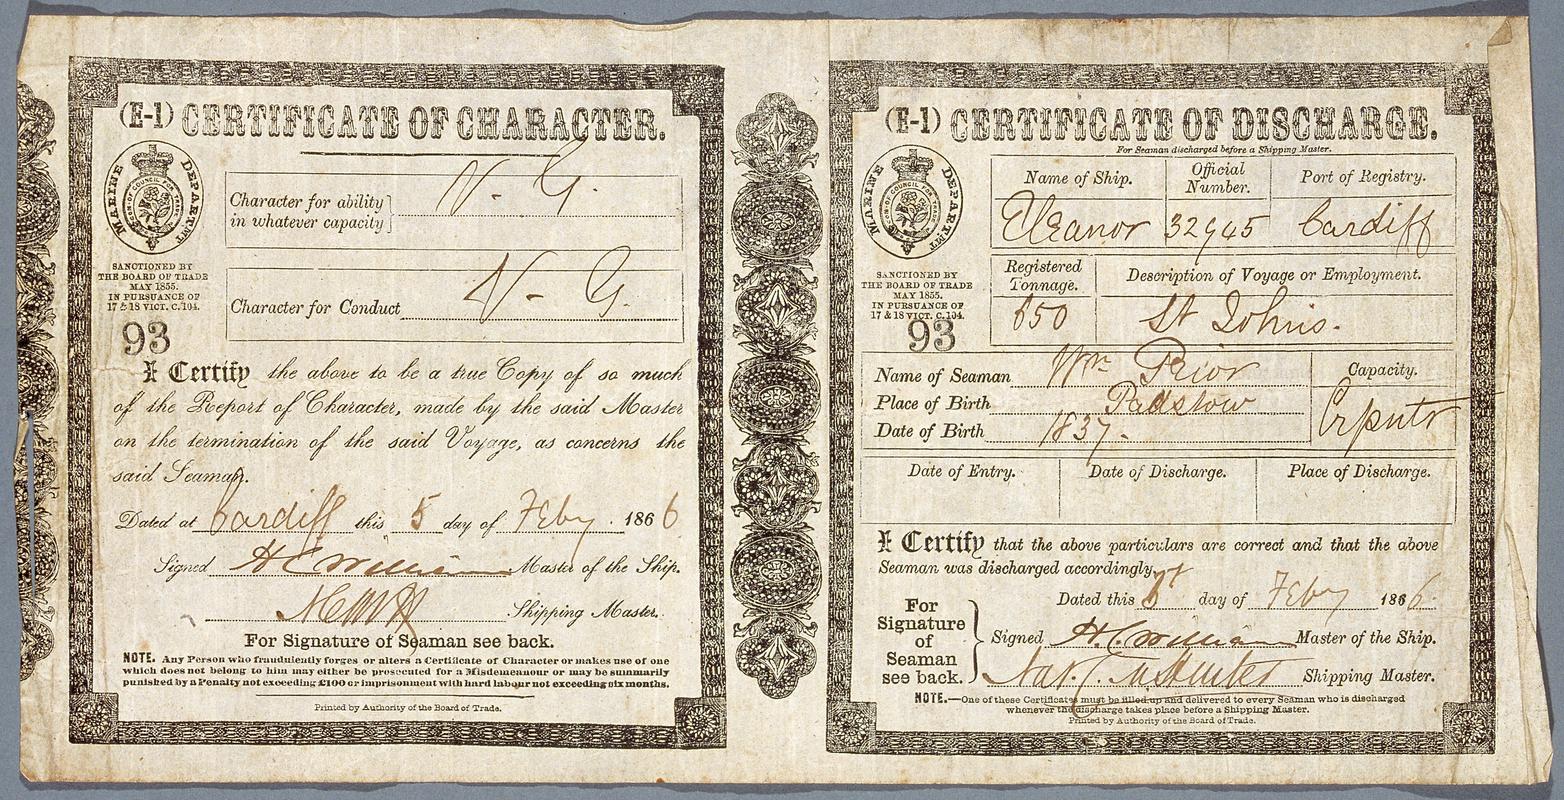 (E-1) CERTIFICATE OF CHARACTER.
MARINE DEPARTMT
SANCTIONED BY
THE BOARD OF TRADE
MAY 1855.
IN PURSUANCE OF
17 & 18 VICT. C.104.
93
Character for ability
in whatever capacity} V. G.
Character for Conduct V. G.
I Certify the above to be a true Copy of so much
of the Report of Character, made by the said Master
on the termination of the said Voyage, as concerns the
said Seaman.
Dated at Cardiff this 5 day of Feby. 1866
Signed Master of the Ship.
Shipping Master.
For Signature of Seaman see back.
NOTE. Any Person who fraudulently forges or alters a Certificate of Character or makes use of one
which does not belong to him may either be prosecuted for a Misdemeanour or may be summarily
punished by a Penalty not exceeding £100 or imprisonment with hard labour not exceeding six months.
Printed by Authority of the Board of Trade.
(E-1) CERTIFICATE OF DISCHARGE.
For Seaman discharged before a Shipping Master.
MARINE DEPARTMT
SANCTIONED BY
THE BOARD OF TRADE
MAY 1855.
IN PURSUANCE OF
17 & 18 VICT. C.104.
93
Name of Ship. Official Number. Port of Registry.
Eleanor 32945 Cardiff
Registered Tonnage. Description of Voyage or Employment.
650 St Johns.
Name of Seaman Wm Prior Capacity.
Place of Birth Padstow Crpntr
Date of Birth 1837.
Date of Entry. Date of Discharge. Place of Discharge.
I Certify that the above particulars are correct and that the above
Seaman was discharged accordingly.
Dated this 5 day of Feby 1866.
For Signature of Seaman see back.
Signed Master of the Ship.
Shipping Master.
NOTE.—One of these Certificates must be filled up and delivered to every Seaman who is discharged
whenever the discharge takes place before a Shipping Master.
Printed by Authority of the Board of Trade.